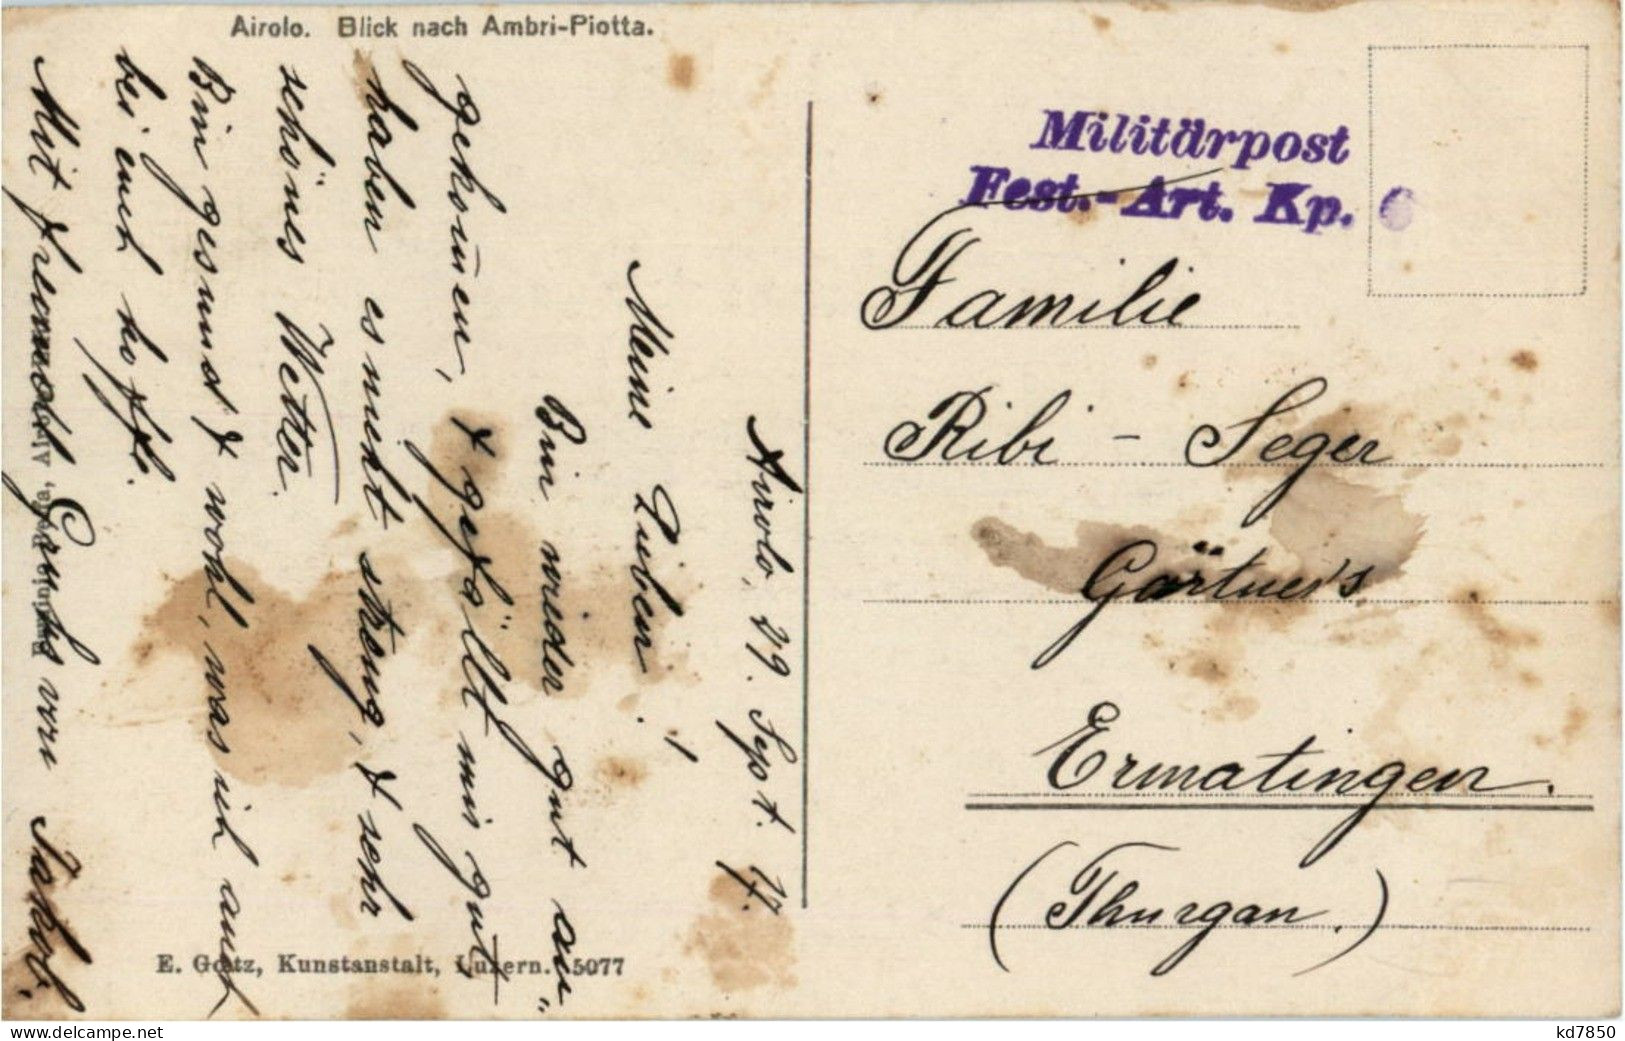 Airolo. Blick nach Ambri-Piotta.
Airolo, 29. Sept. 17.
Meine Lieben !
Bin wieder gut an"
gekom̄en, & gefällt mir gut,
haben es nicht streng, & sehr
schönes Wetter.
Bin gesund & wohl, was ich auch
bei euch hoffe.
Mit freundl. Gruss von Jakob.
E. Goetz, Kunstanstalt, Luzern. 5077
Militärpost
Fest.-Art. Kp.
Familie
Ribi - Seger
Gärtner's
Ermatingen.
(Thurgau.)
kd7850